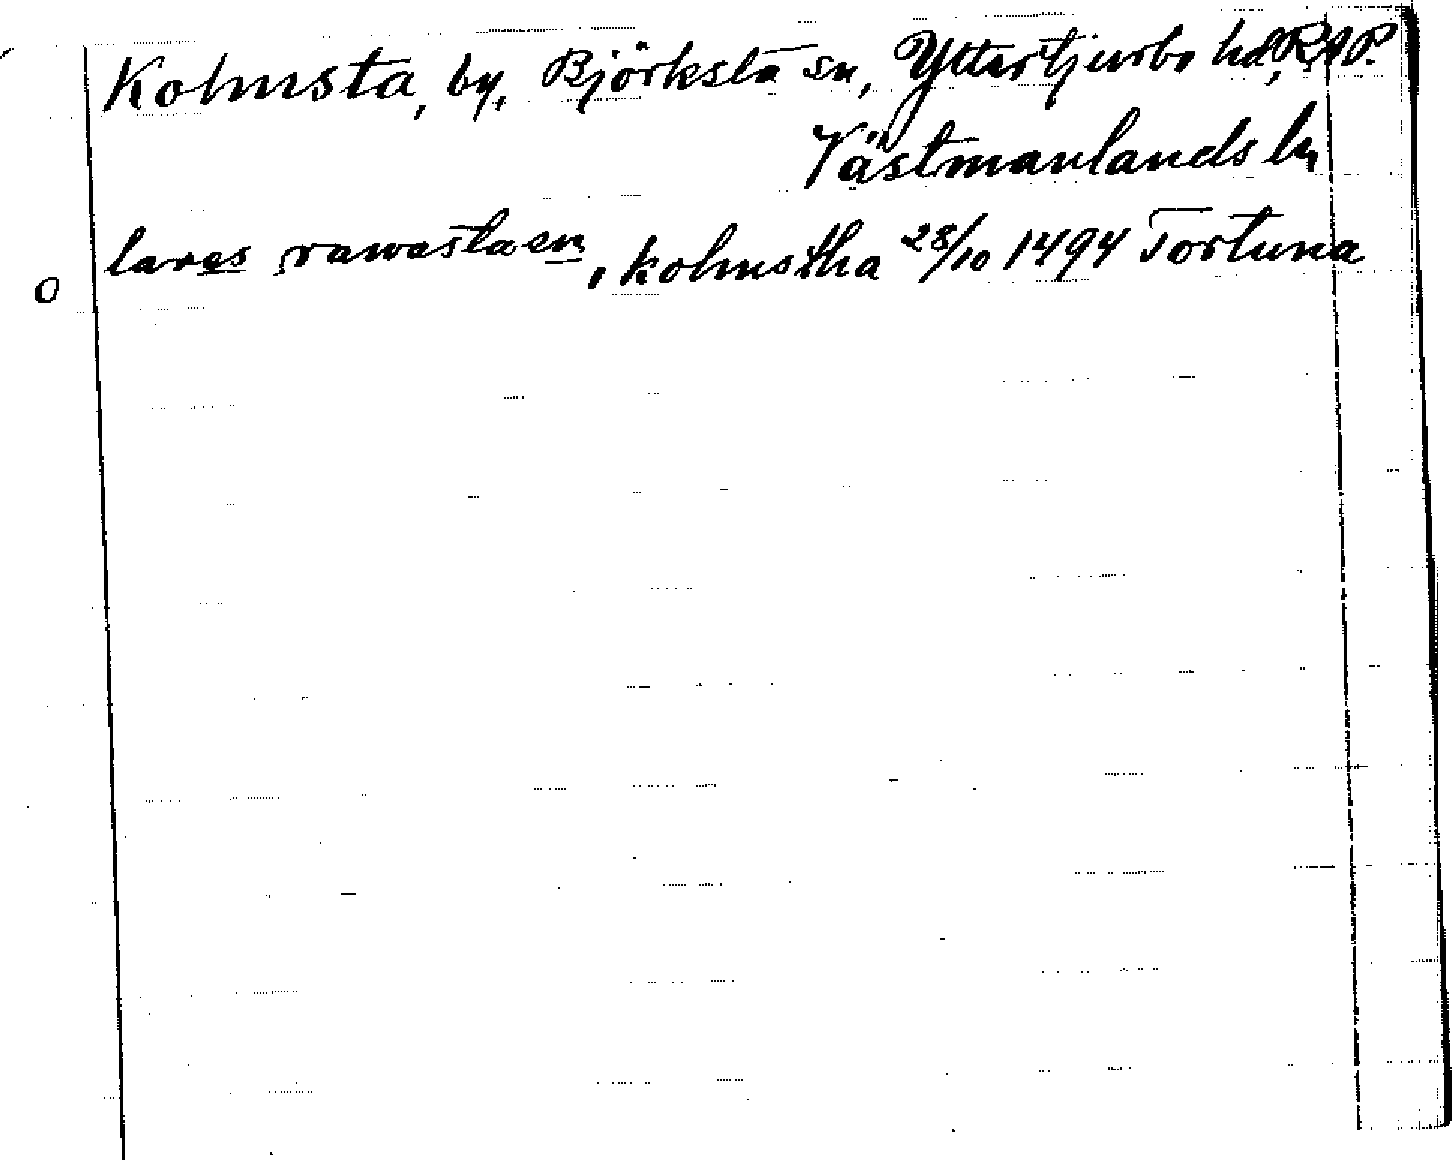 Kolmsta, by, Björksta sn, Yttertjurbo hd, RAP.
Västmanlands ln
lares rawastaen, kolmstha 28/10 1494 Tortuna
O